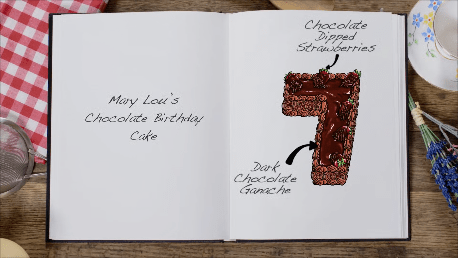 Mary Lou's
Chocolate Birthday
Cake
Chocolate
Dipped
Strawberries
Dark
Chocolate
Ganache